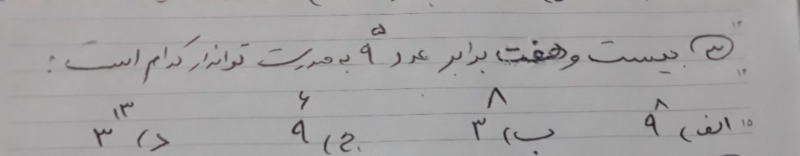 ۳) بیست و هفت برابر عدد ۹^۵ به صورت تواندار کدام است :
الف) ۹^۸ ب) ۳^۸ ج) ۹^۶ د) ۳^۱۳